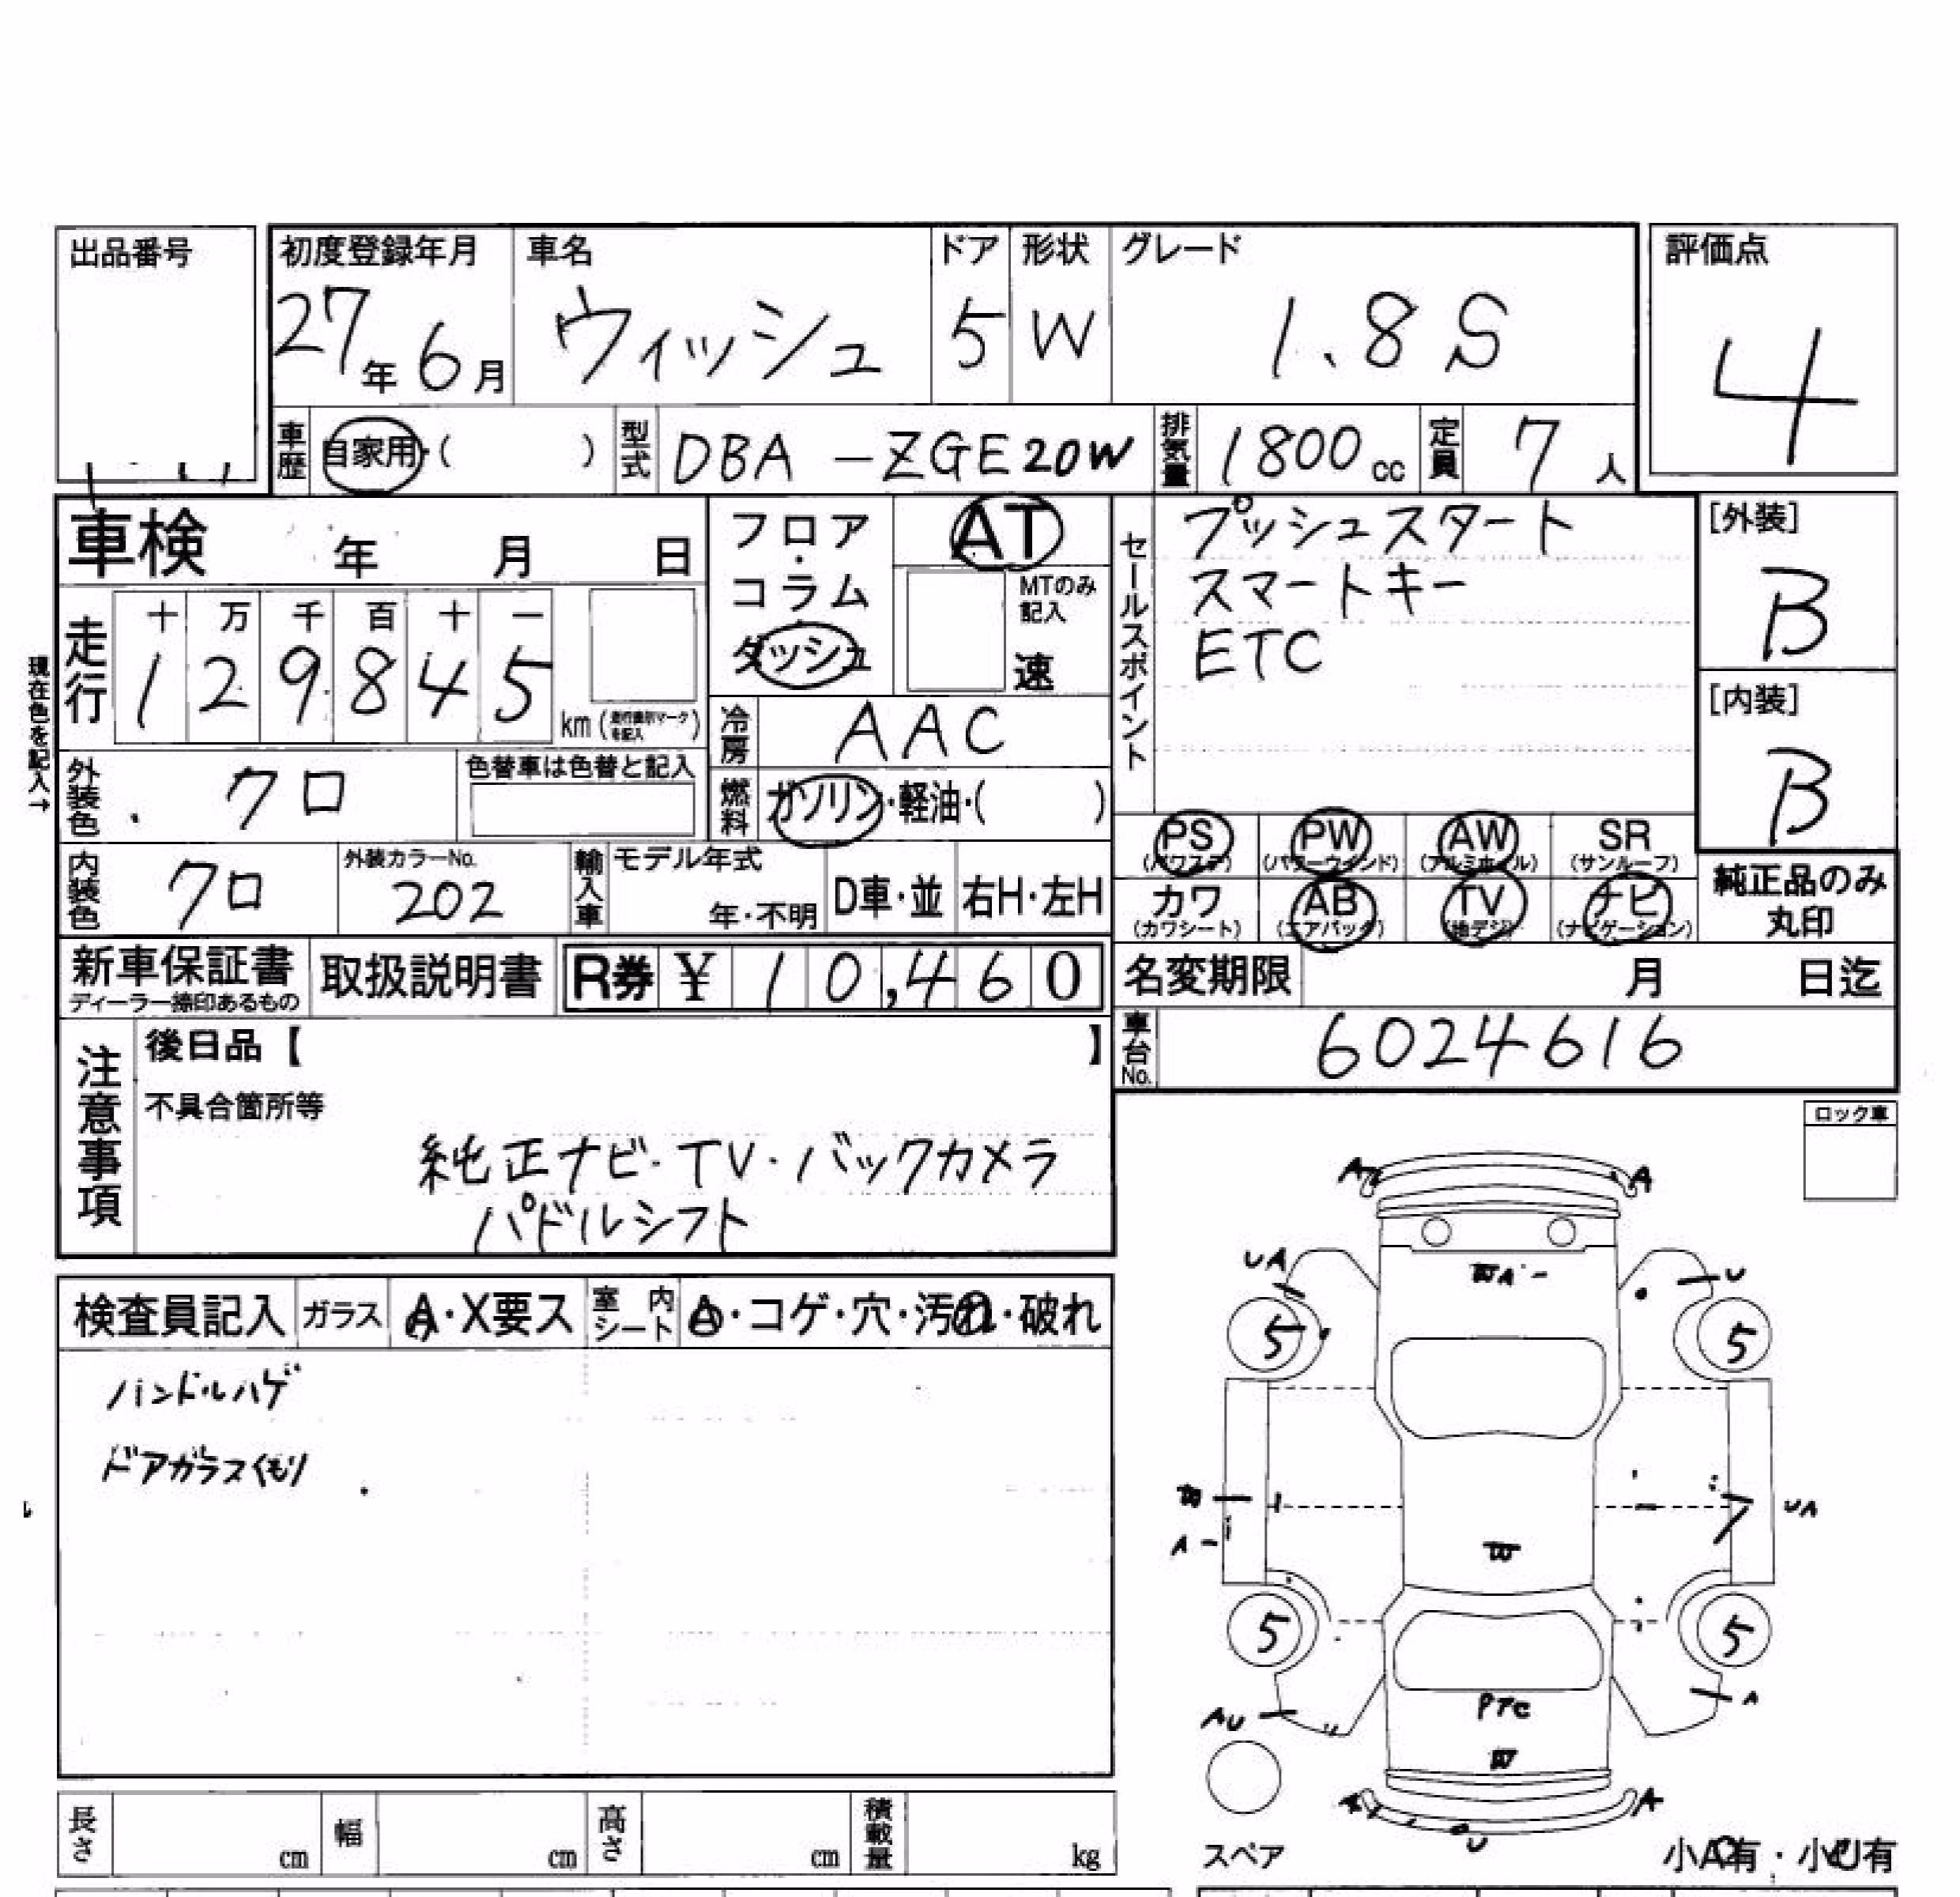 出品番号
初度登録年月 27年6月
車名 ウィッシュ
ドア 5
形状 W
グレード 1.8S
評価点 4
車歴 自家用・( )
型式 DBA-ZGE20W
排気量 1800cc
定員 7人
車検 年 月 日
フロア・コラム ダッシュ
AT
MTのみ記入
速
セールスポイント
プッシュスタート
スマートキー
ETC
[外装] B
[内装] B
現在色を記入→
走行 十 万 千 百 十 一
1 2 9 8 4 5 km (走行表示マークを記入)
冷房 AAC
燃料 ガソリン・軽油・( )
外装色 クロ
色替車は色替と記入
内装色 クロ
外装カラーNo. 202
輸入車 モデル年式 年・不明 D車・並 右H・左H
PS (パワステ) PW (パワーウインド) AW (アルミホイル) SR (サンルーフ)
カワ (カワシート) AB (エアバッグ) TV (地デジ) ナビ (ナビゲーション)
純正品のみ丸印
新車保証書 ディーラー捺印あるもの
取扱説明書
R券 ¥10,460
名変期限 月 日迄
車台No. 6024616
注意事項
後日品【 】
不具合箇所等
純正ナビ・TV・バックカメラ
パドルシフト
ロック車
検査員記入 ガラス A・X要ス 室内シート A・コゲ・穴・汚れ・破れ
ハンドルハゲ
ドアガラスくもり
A A
UA U
5 5
A UA
W
5 5
PTC
AU A
W
A A
U
スペア
小A有・小U有
長さ cm 幅 cm 高さ cm 積載量 kg